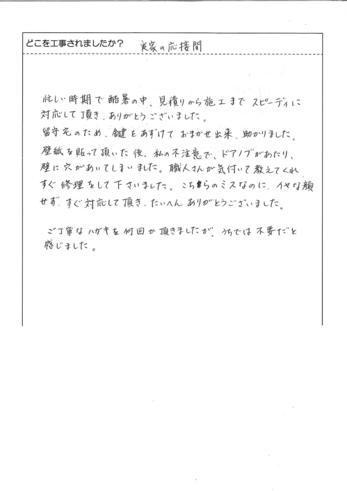 どこを工事されましたか？ 実家の応接間
忙しい時期で酷暑の中、見積りから施工まで スピーディに
対応して頂き、ありがとうございました。
留守宅のため、鍵をあずけて おまかせ出来、助かりました。
壁紙を貼って頂いた後、私の不注意で、ドアノブがあたり、
壁に穴があいてしまいました。職人さんが気付いて教えてくれ
すぐ 修理をして下さいました。こちらのミスなのに、イヤな顔
せず、すぐ対応して頂き、たいへん ありがとうございました。
ご丁寧なハガキを何回か頂きましたが、うちでは不要だと
感じました。